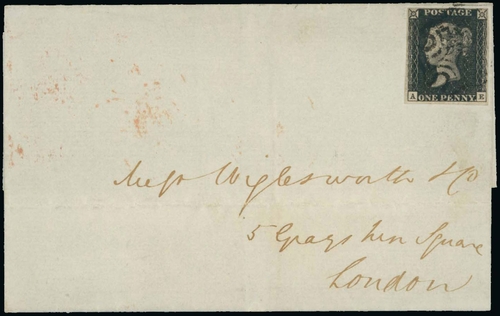 POSTAGE
A ONE PENNY E
Messrs Wiglesworth & Co
5 Grays Inn Square
London